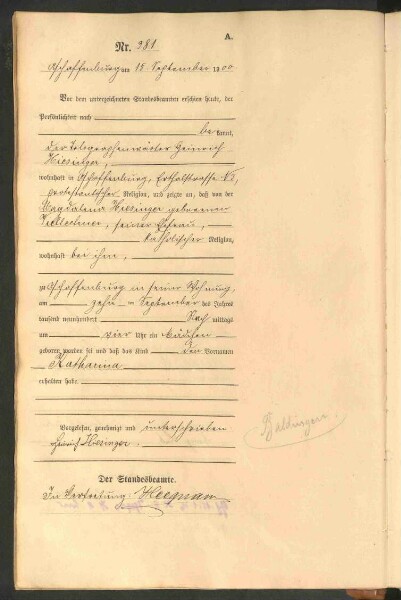 A.
Nr. 381
Aschaffenburg am 15 September 1900
Vor dem unterzeichneten Standesbeamten erschien heute, der
Persönlichkeit nach
be kannt,
der Telegraphenwärter Heinrich
Hiesinger,
wohnhaft in Aschaffenburg,
protestantischer Religion, und zeigte an, daß von der
Magdalena Hiesinger geborenen
seiner Ehefrau,
katholischer Religion,
wohnhaft bei ihm,
zu Aschaffenburg in seiner Wohnung,
am zehn September des Jahres
tausend neunhundert Nach mittags
um vier Uhr ein Mädchen
geboren worden sei und daß das Kind den Vornamen
Katharina
erhalten habe.
Vorgelesen, genehmigt und unterschrieben
Heinrich Hiesinger.
Der Standesbeamte.
In Vertretung: